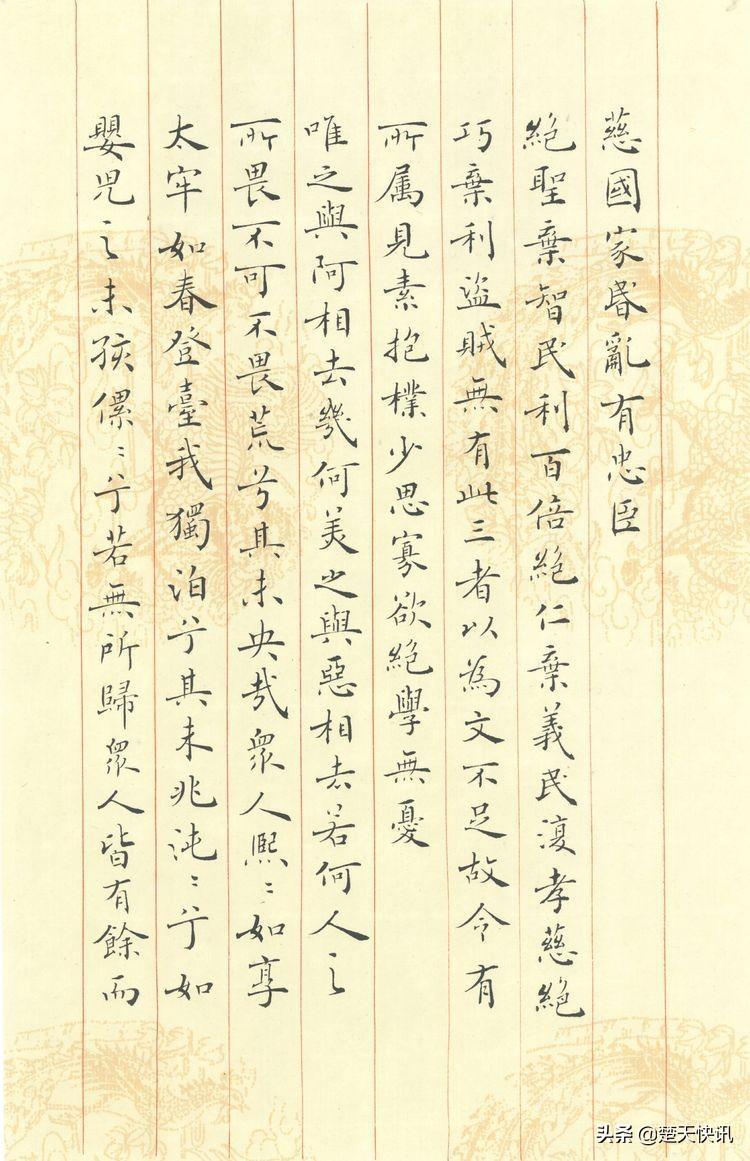 慈國家昏亂有忠臣
絕聖棄智民利百倍絕仁棄義民復孝慈絕
巧棄利盜賊無有此三者以為文不足故令有
所属見素抱樸少思寡欲絕學無憂
唯之與阿相去幾何美之與惡相去若何人之
所畏不可不畏荒兮其未央哉眾人熙〻如享
太牢如春登臺我獨泊兮其未兆沌〻兮如
嬰児之未孩儽〻兮若無所歸眾人皆有餘而
头条 @楚天快讯